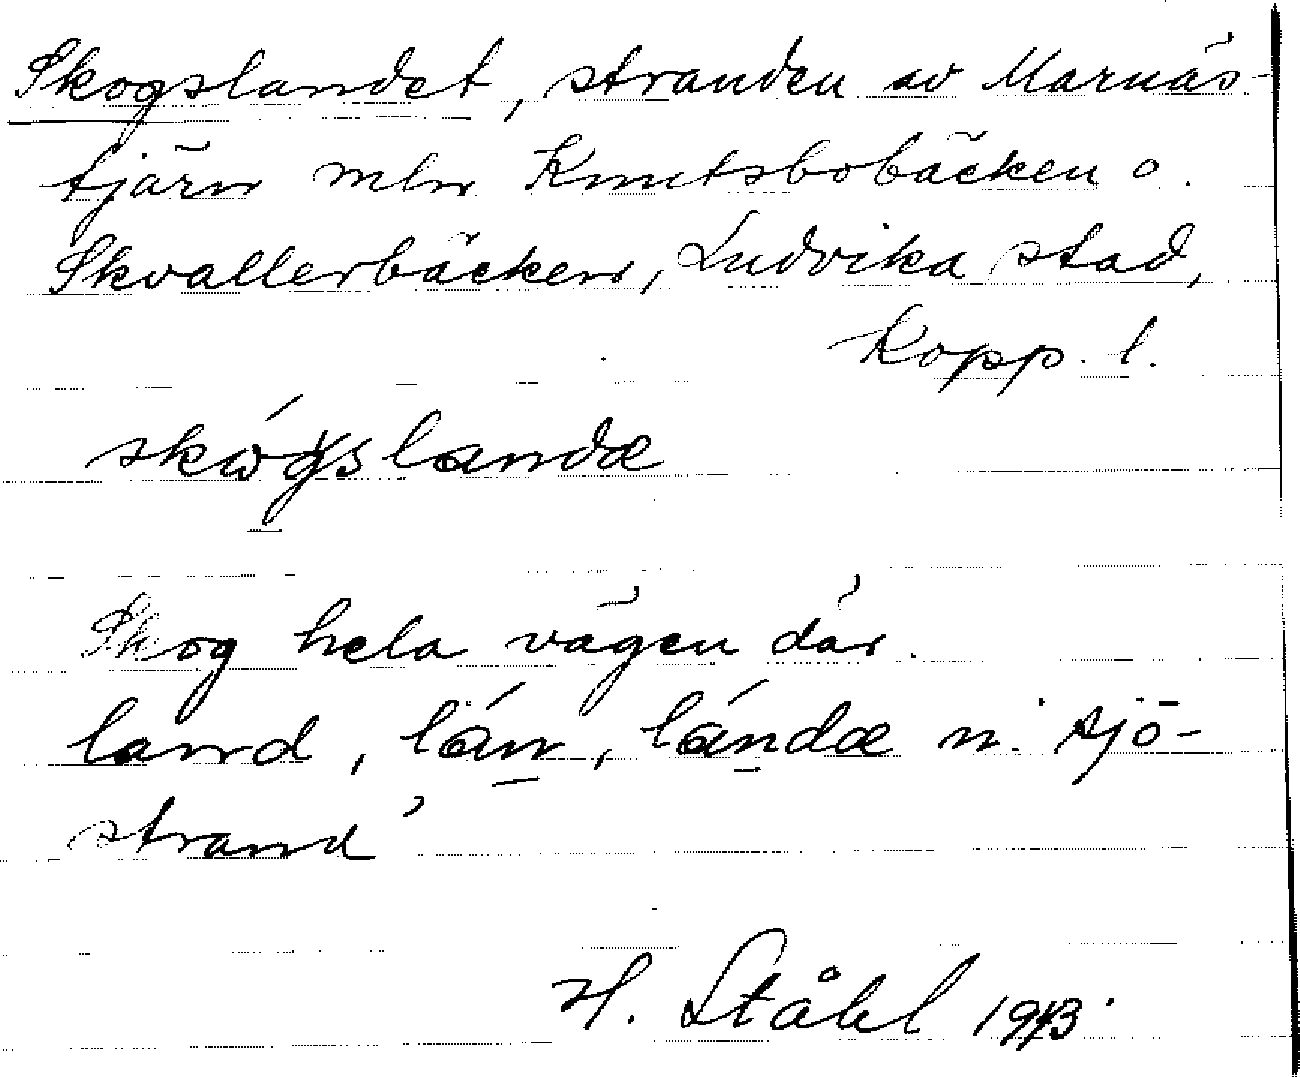 Skogslandet, stranden av Marnäs-
tjärn mln Knutsbobäcken o.
Skvallerbäcken, Ludvika stad,
Kopp. l.
skógslandæ
Skog hela vägen där.
land, lán, lándæ n. 'sjö-
strand'
H. Ståhl 1913